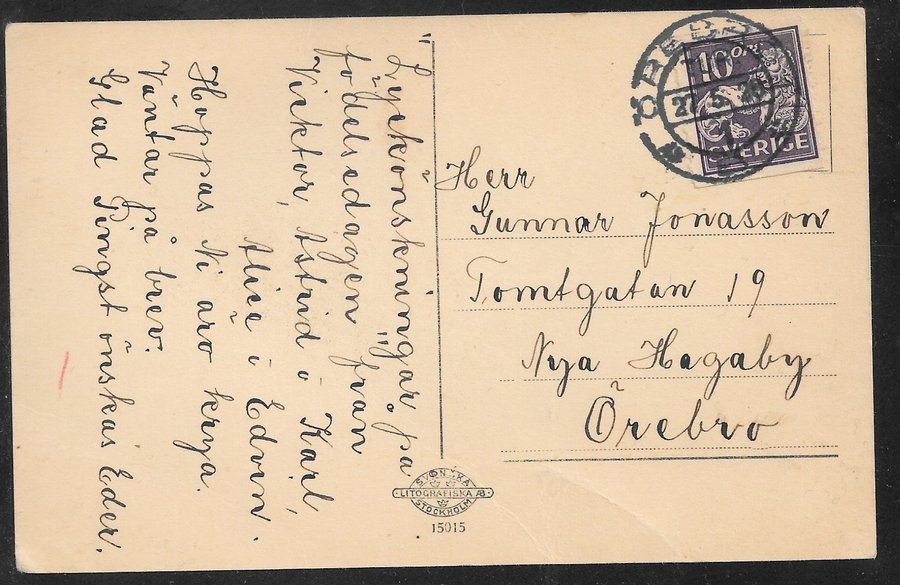 "Lyckönskningar på
födelsedagen" från
Viktor, Astrid o Karl,
Alice o Edvin.
Hoppas Ni äro krya.
Väntar på brev.
Glad Pingst önskas Eder.
Herr
Gunnar Jonasson
Tomtgatan 19
Nya Hagaby
Örebro
10 ÖRE
SVERIGE
ÖREBRO
27 5
SVENSKA
LITOGRAFISKA AB
STOCKHOLM
15015